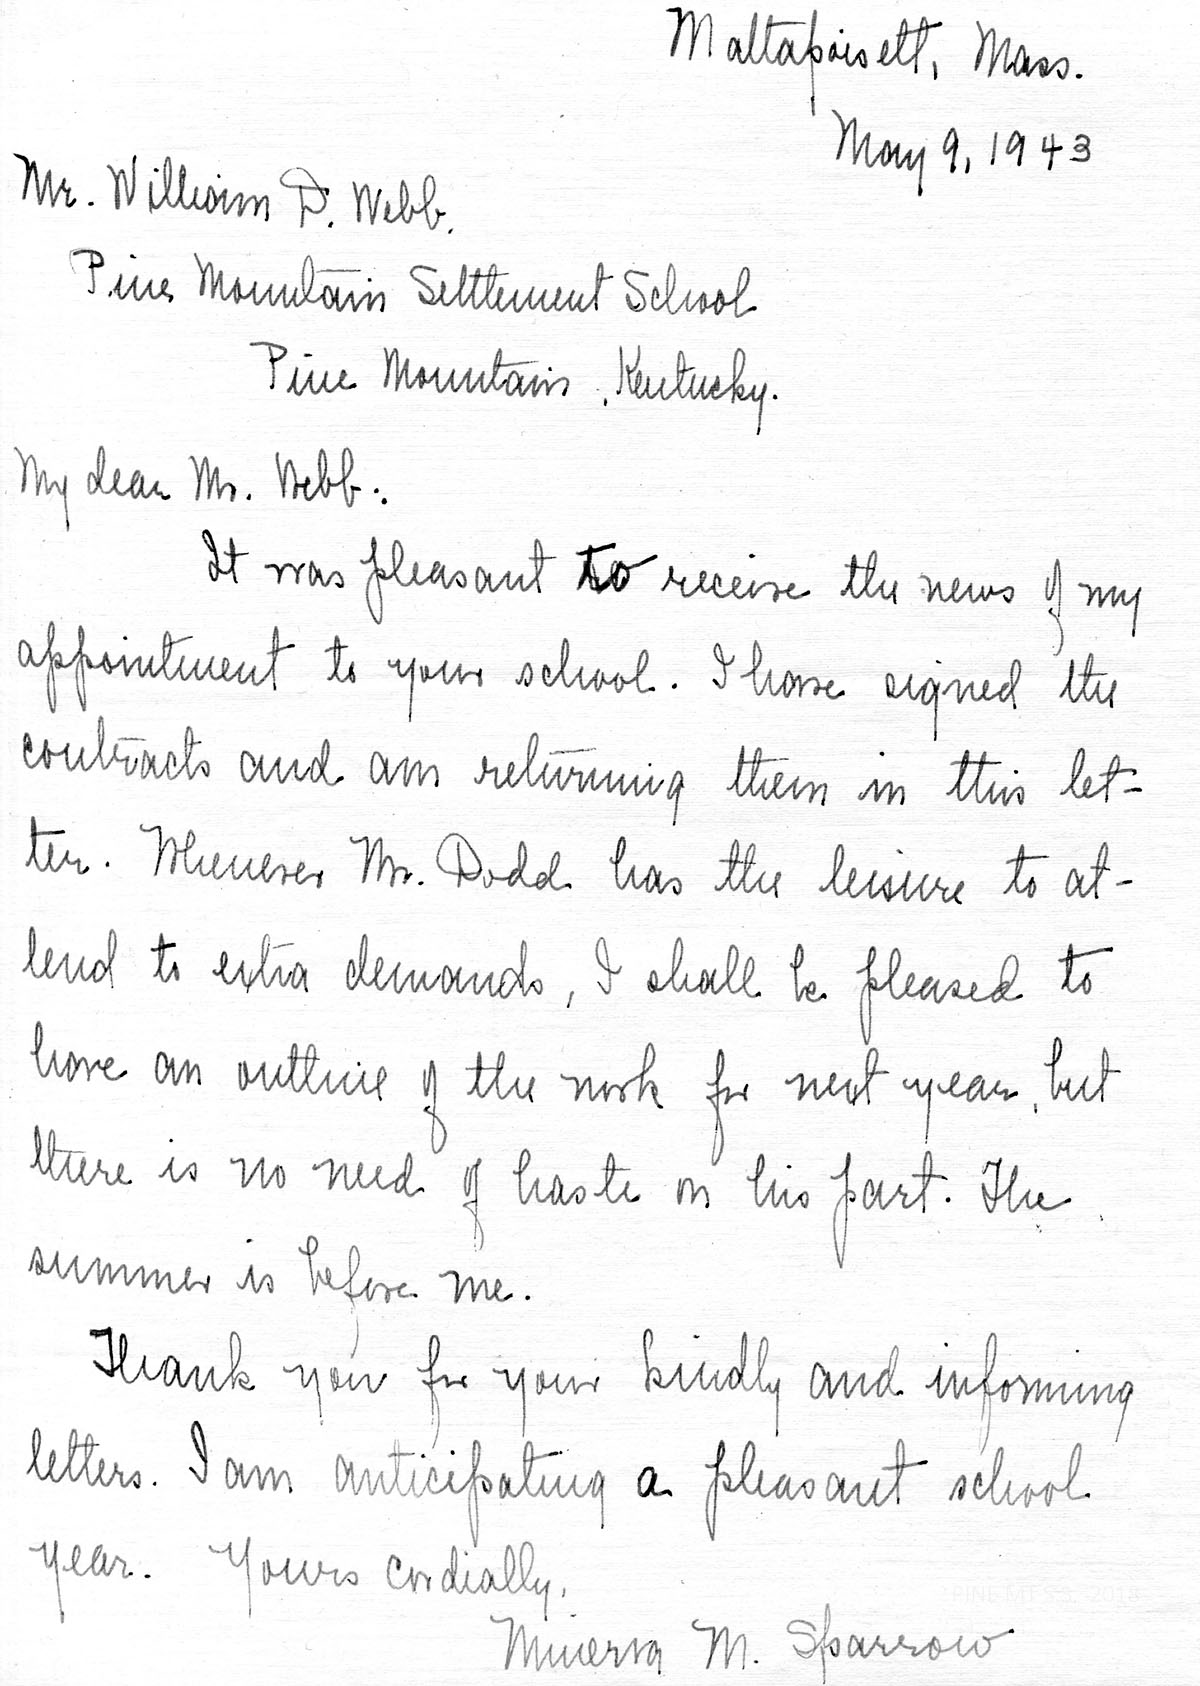 Mattapoisett, Mass.
May 9, 1943
Mr. William D. Webb.
Pine Mountain Settlement School
Pine Mountain, Kentucky.
My dear Mr. Webb:
It was pleasant to receive the news of my
appointment to your school. I have signed the
contracts and am returning them in this let-
ter. Whenever Mr. Dodd has the leisure to at-
tend to extra demands, I shall be pleased to
have an outline of the work for next year, but
there is no need of haste on his part. The
summer is before me.
Thank you for your kindly and informing
letters. I am anticipating a pleasant school
year. Yours cordially,
PINE MT S.S. 2018
Minerva M. Sparrow